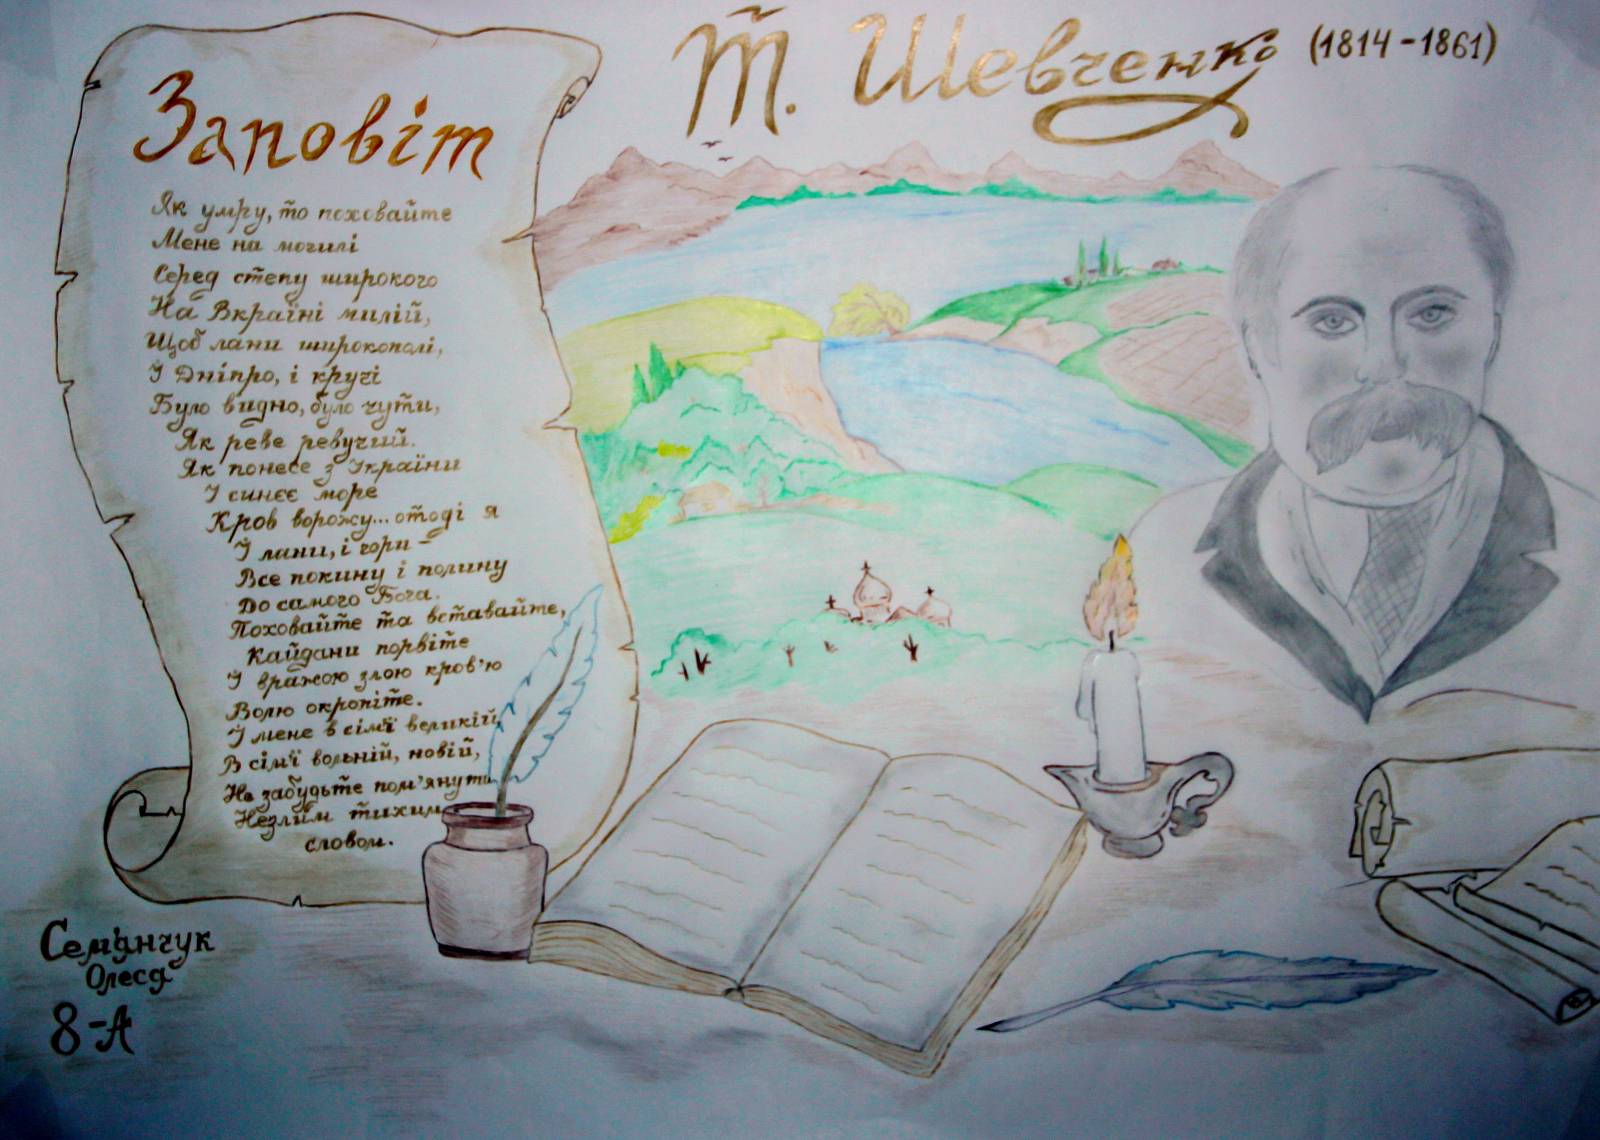 Т. Шевченко (1814-1861)
Заповіт
Як умру, то поховайте
Мене на могилі
Серед степу широкого
На Вкраїні милій,
Щоб лани широкополі,
І Дніпро, і кручі
Було видно, було чути,
Як реве ревучий.
Як понесе з України
У синєє море
Кров ворожу... отоді я
І лани, і гори -
Все покину і полину
До самого Бога.
Поховайте та вставайте,
Кайдани порвіте
І вражою злою кров'ю
Волю окропіте.
І мене в сім'ї великій,
В сім'ї вольній, новій,
Не забудьте пом'янути
Незлим тихим
словом.
Сем'янчук
Олеся
8-А